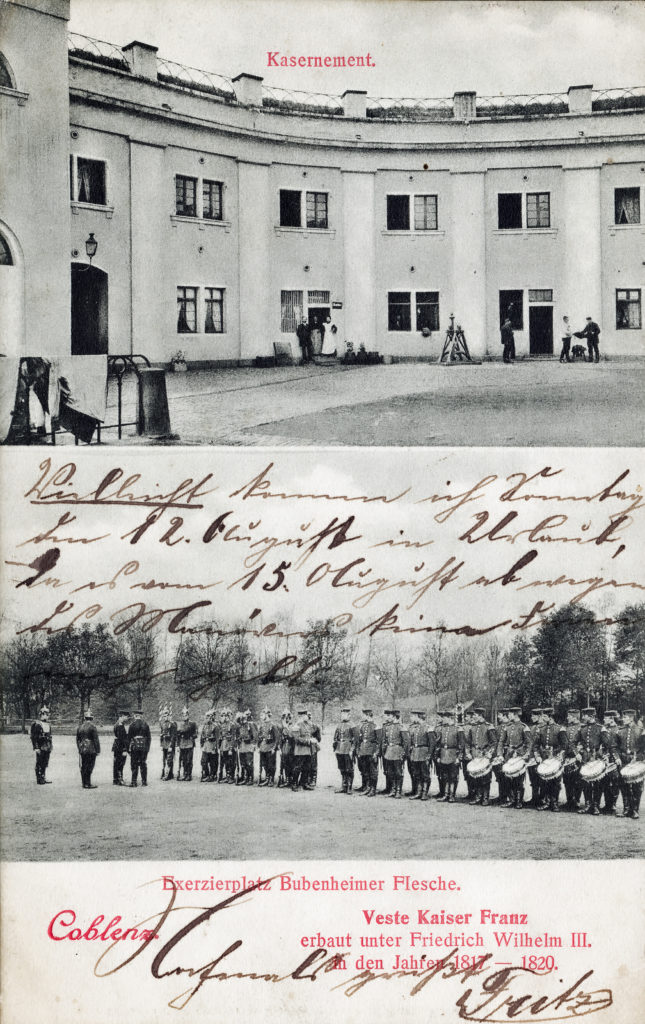 Kasernement.
Vielleicht komme ich Sonntag
den 12. August in Urlaub,
da es vom 15. August ab wegen
des Manövers keinen
mehr gibt.
Exerzierplatz Bubenheimer Flesche.
Coblenz.
Veste Kaiser Franz
erbaut unter Friedrich Wilhelm III.
in den Jahren 1817 — 1820.
Nochmals grüßt
Fritz